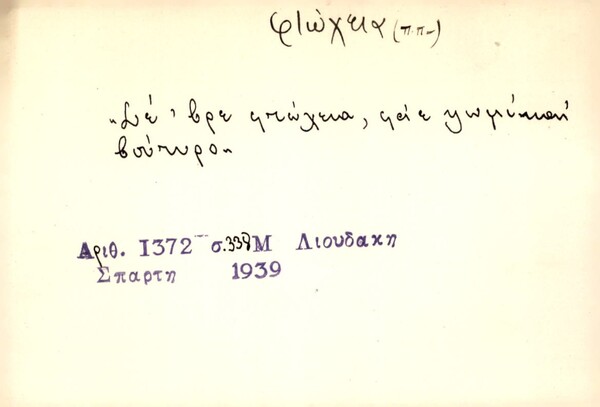 φτώχεια (π.π-)
"Δέ 'βρε φτώχεια, φάε ψωμί και
βούτυρο"
Αριθ. 1372 σ.338 Μ Λιουδακη
Σπαρτη 1939